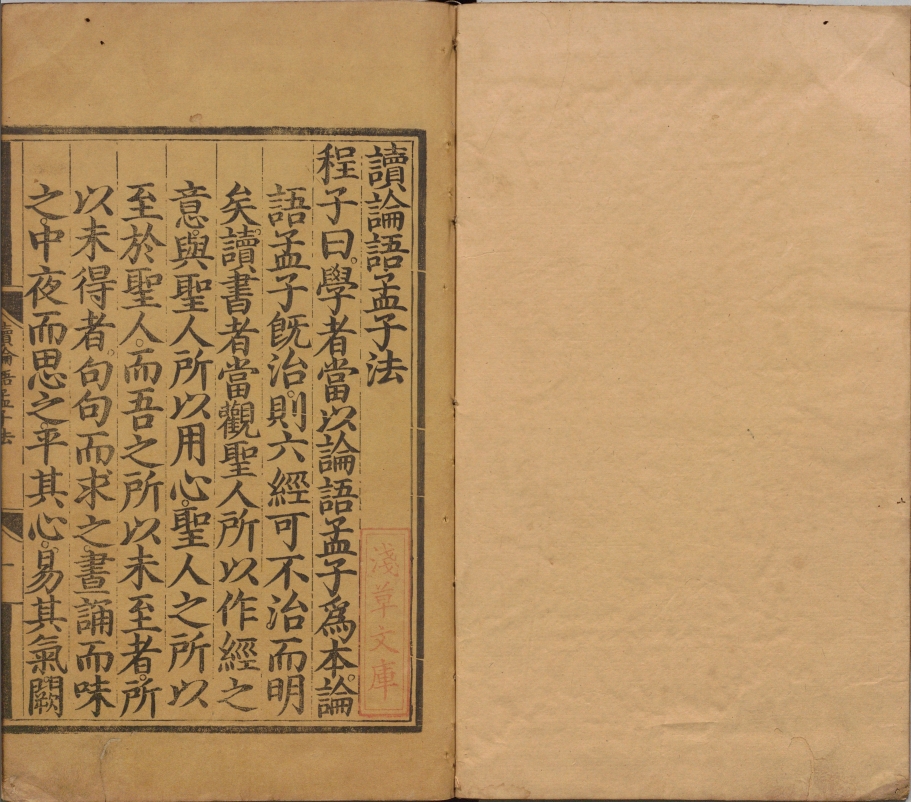 讀論語孟子法
淺草文庫
程子曰。學者當以論語孟子爲本。論
語孟子旣治。則六經可不治而明
矣。讀書者當觀聖人所以作經之
意。與聖人所以用心。聖人之所以
至於聖人。而吾之所以未至者。所
以未得者。句句而求之。晝誦而味
之。中夜而思之。平其心。易其氣。闕
讀論語孟子法
一